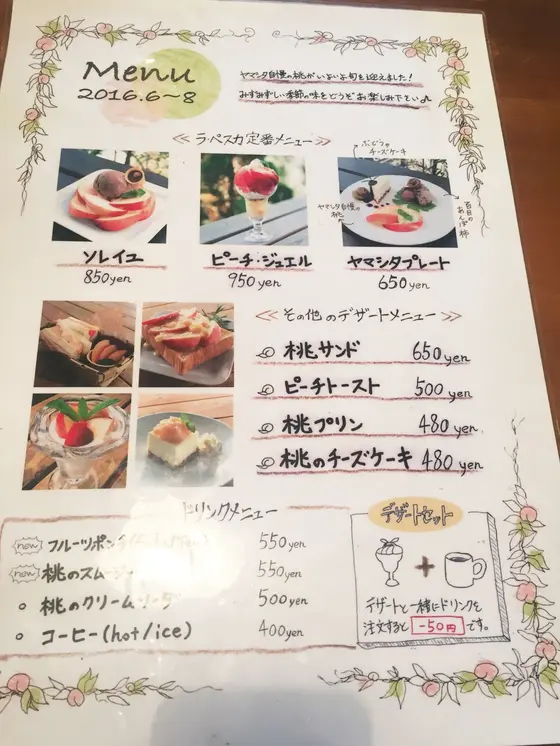 Menu
2016.6〜8
ヤマシタ自慢の桃がいよいよ旬を迎えました!
みずみずしい季節の味をどうぞお楽しみ下さい♪
≪ラ・ペスカ定番メニュー≫
ぶどうの
チーズケーキ
ヤマシタ自慢の
桃
百目の
あんぽ柿
ソレイユ
850yen
ピーチ・ジュエル
950yen
ヤマシタプレート
650yen
≪その他のデザートメニュー≫
桃サンド 650yen
ピーチトースト 500yen
桃プリン 480yen
桃のチーズケーキ 480yen
ドリンクメニュー
new フルーツポンチ 550yen
new 桃のスムージー 550yen
桃のクリームソーダ 500yen
コーヒー(hot/ice) 400yen
デザートセット
+
デザートと一緒にドリンクを
注文すると -50円 です。